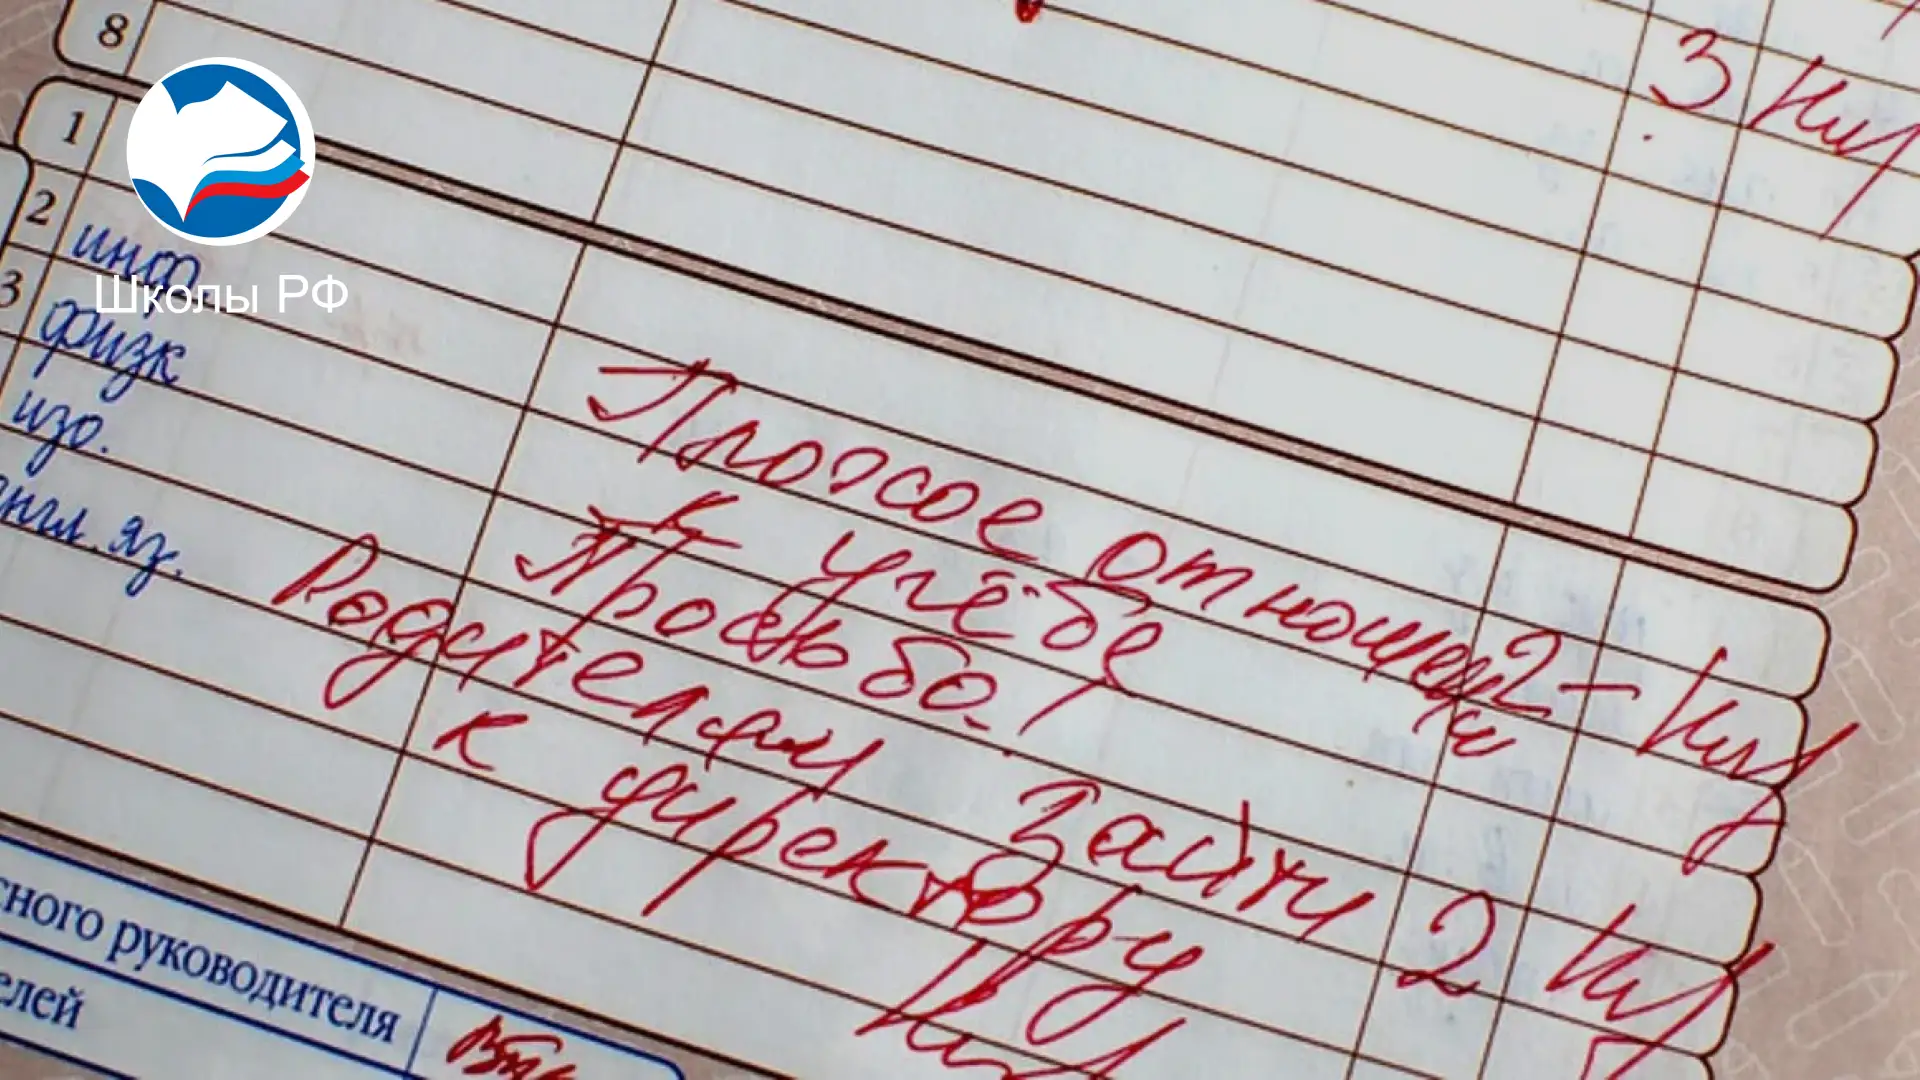 8
3
1
Школы РФ
2 инф.
3 физк
изо.
англ. яз.
Плохое отношен
ие 2-
к учёбе
Просьба!
Родителям зайти
2
к директору
сного руководителя
елей